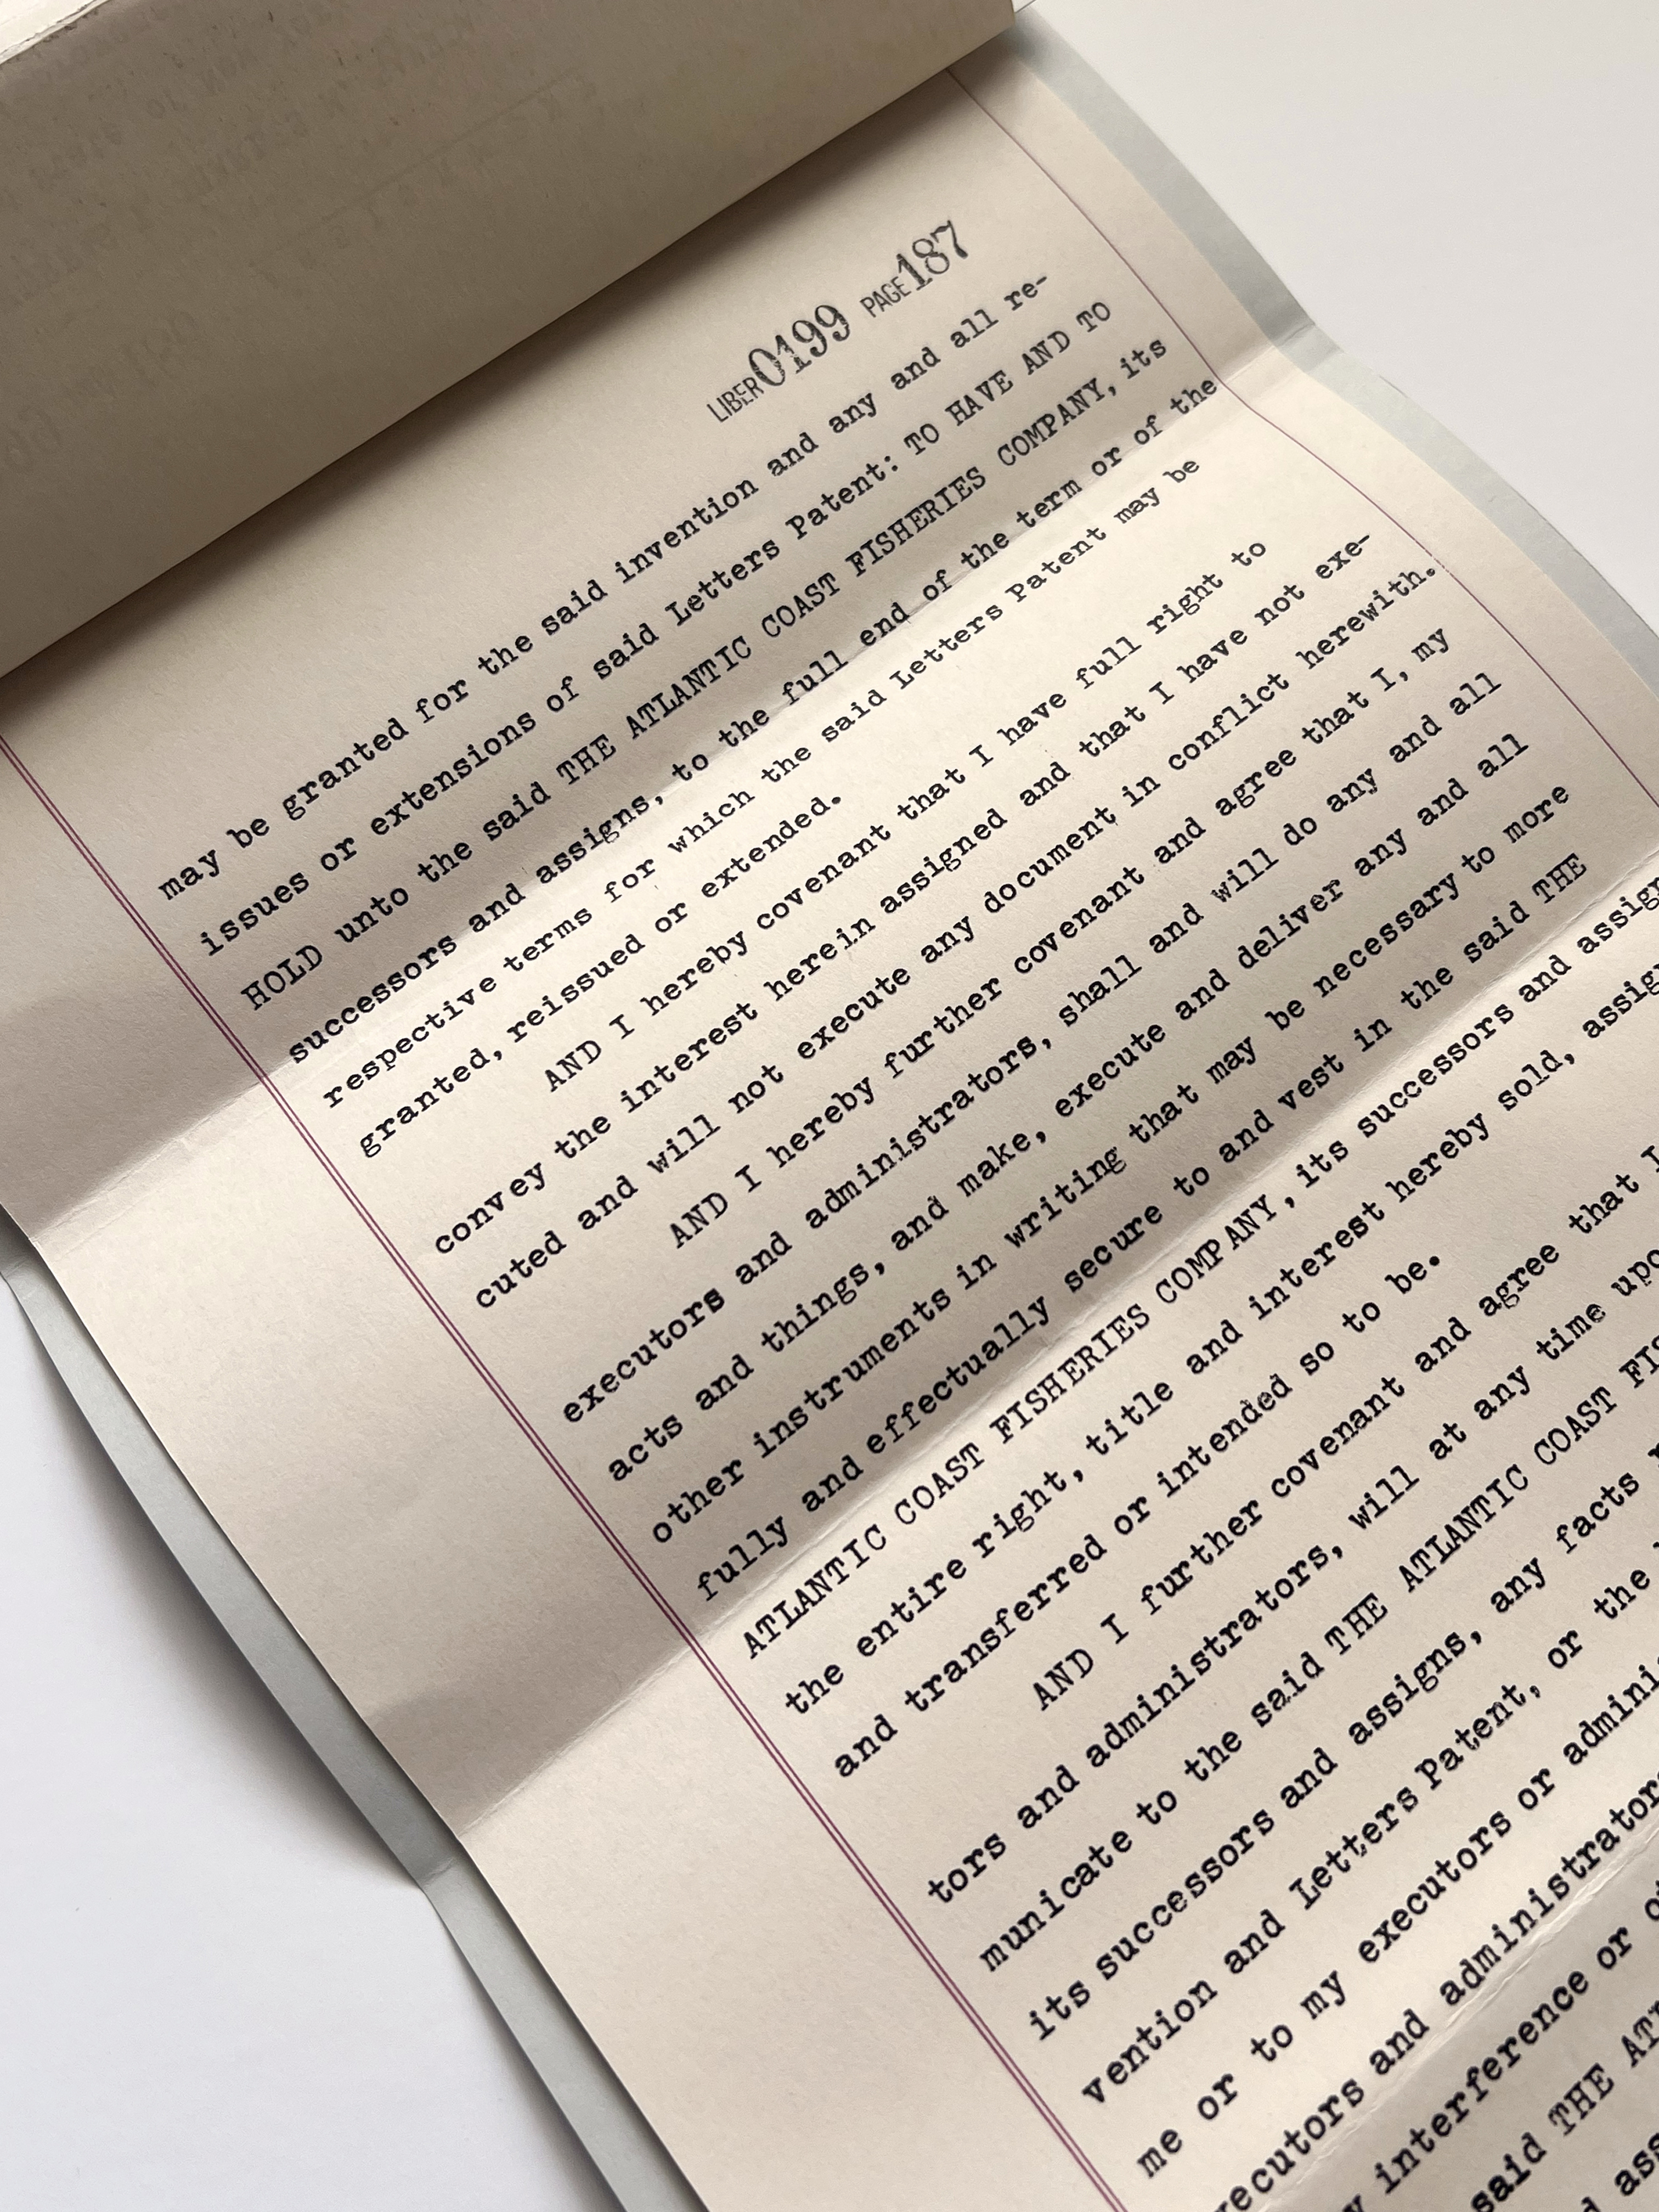 LIBER 0199 PAGE 187
may be granted for the said invention and any and all re-
issues or extensions of said Letters Patent: TO HAVE AND TO
HOLD unto the said THE ATLANTIC COAST FISHERIES COMPANY, its
successors and assigns, to the full end of the term or of the
respective terms for which the said Letters Patent may be
granted, reissued or extended.
AND I hereby covenant that I have full right to
convey the interest herein assigned and that I have not exe-
cuted and will not execute any document in conflict herewith.
AND I hereby further covenant and agree that I, my
executors and administrators, shall and will do any and all
acts and things, and make, execute and deliver any and all
other instruments in writing that may be necessary to more
fully and effectually secure to and vest in the said THE
ATLANTIC COAST FISHERIES COMPANY, its successors and assign
the entire right, title and interest hereby sold, assign
and transferred or intended so to be.
AND I further covenant and agree that I
tors and administrators, will at any time upo
municate to the said THE ATLANTIC COAST FIS
its successors and assigns, any facts
vention and Letters Patent, or the
me or to my executors or adminis
ecutors and administrators
interference or
said THE AT
ass